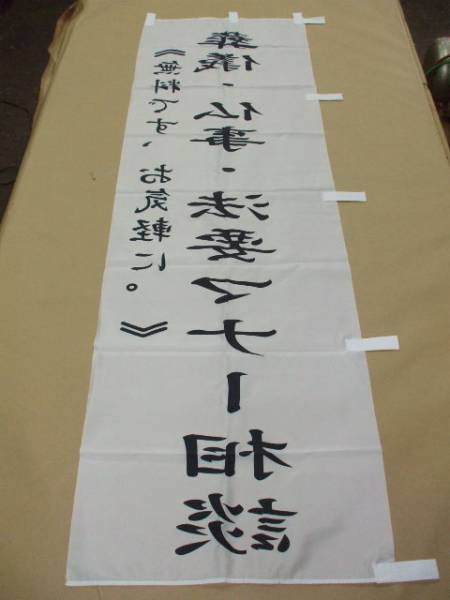 葬儀・仏事・法要マナー相談
《無料です、お気軽に。》